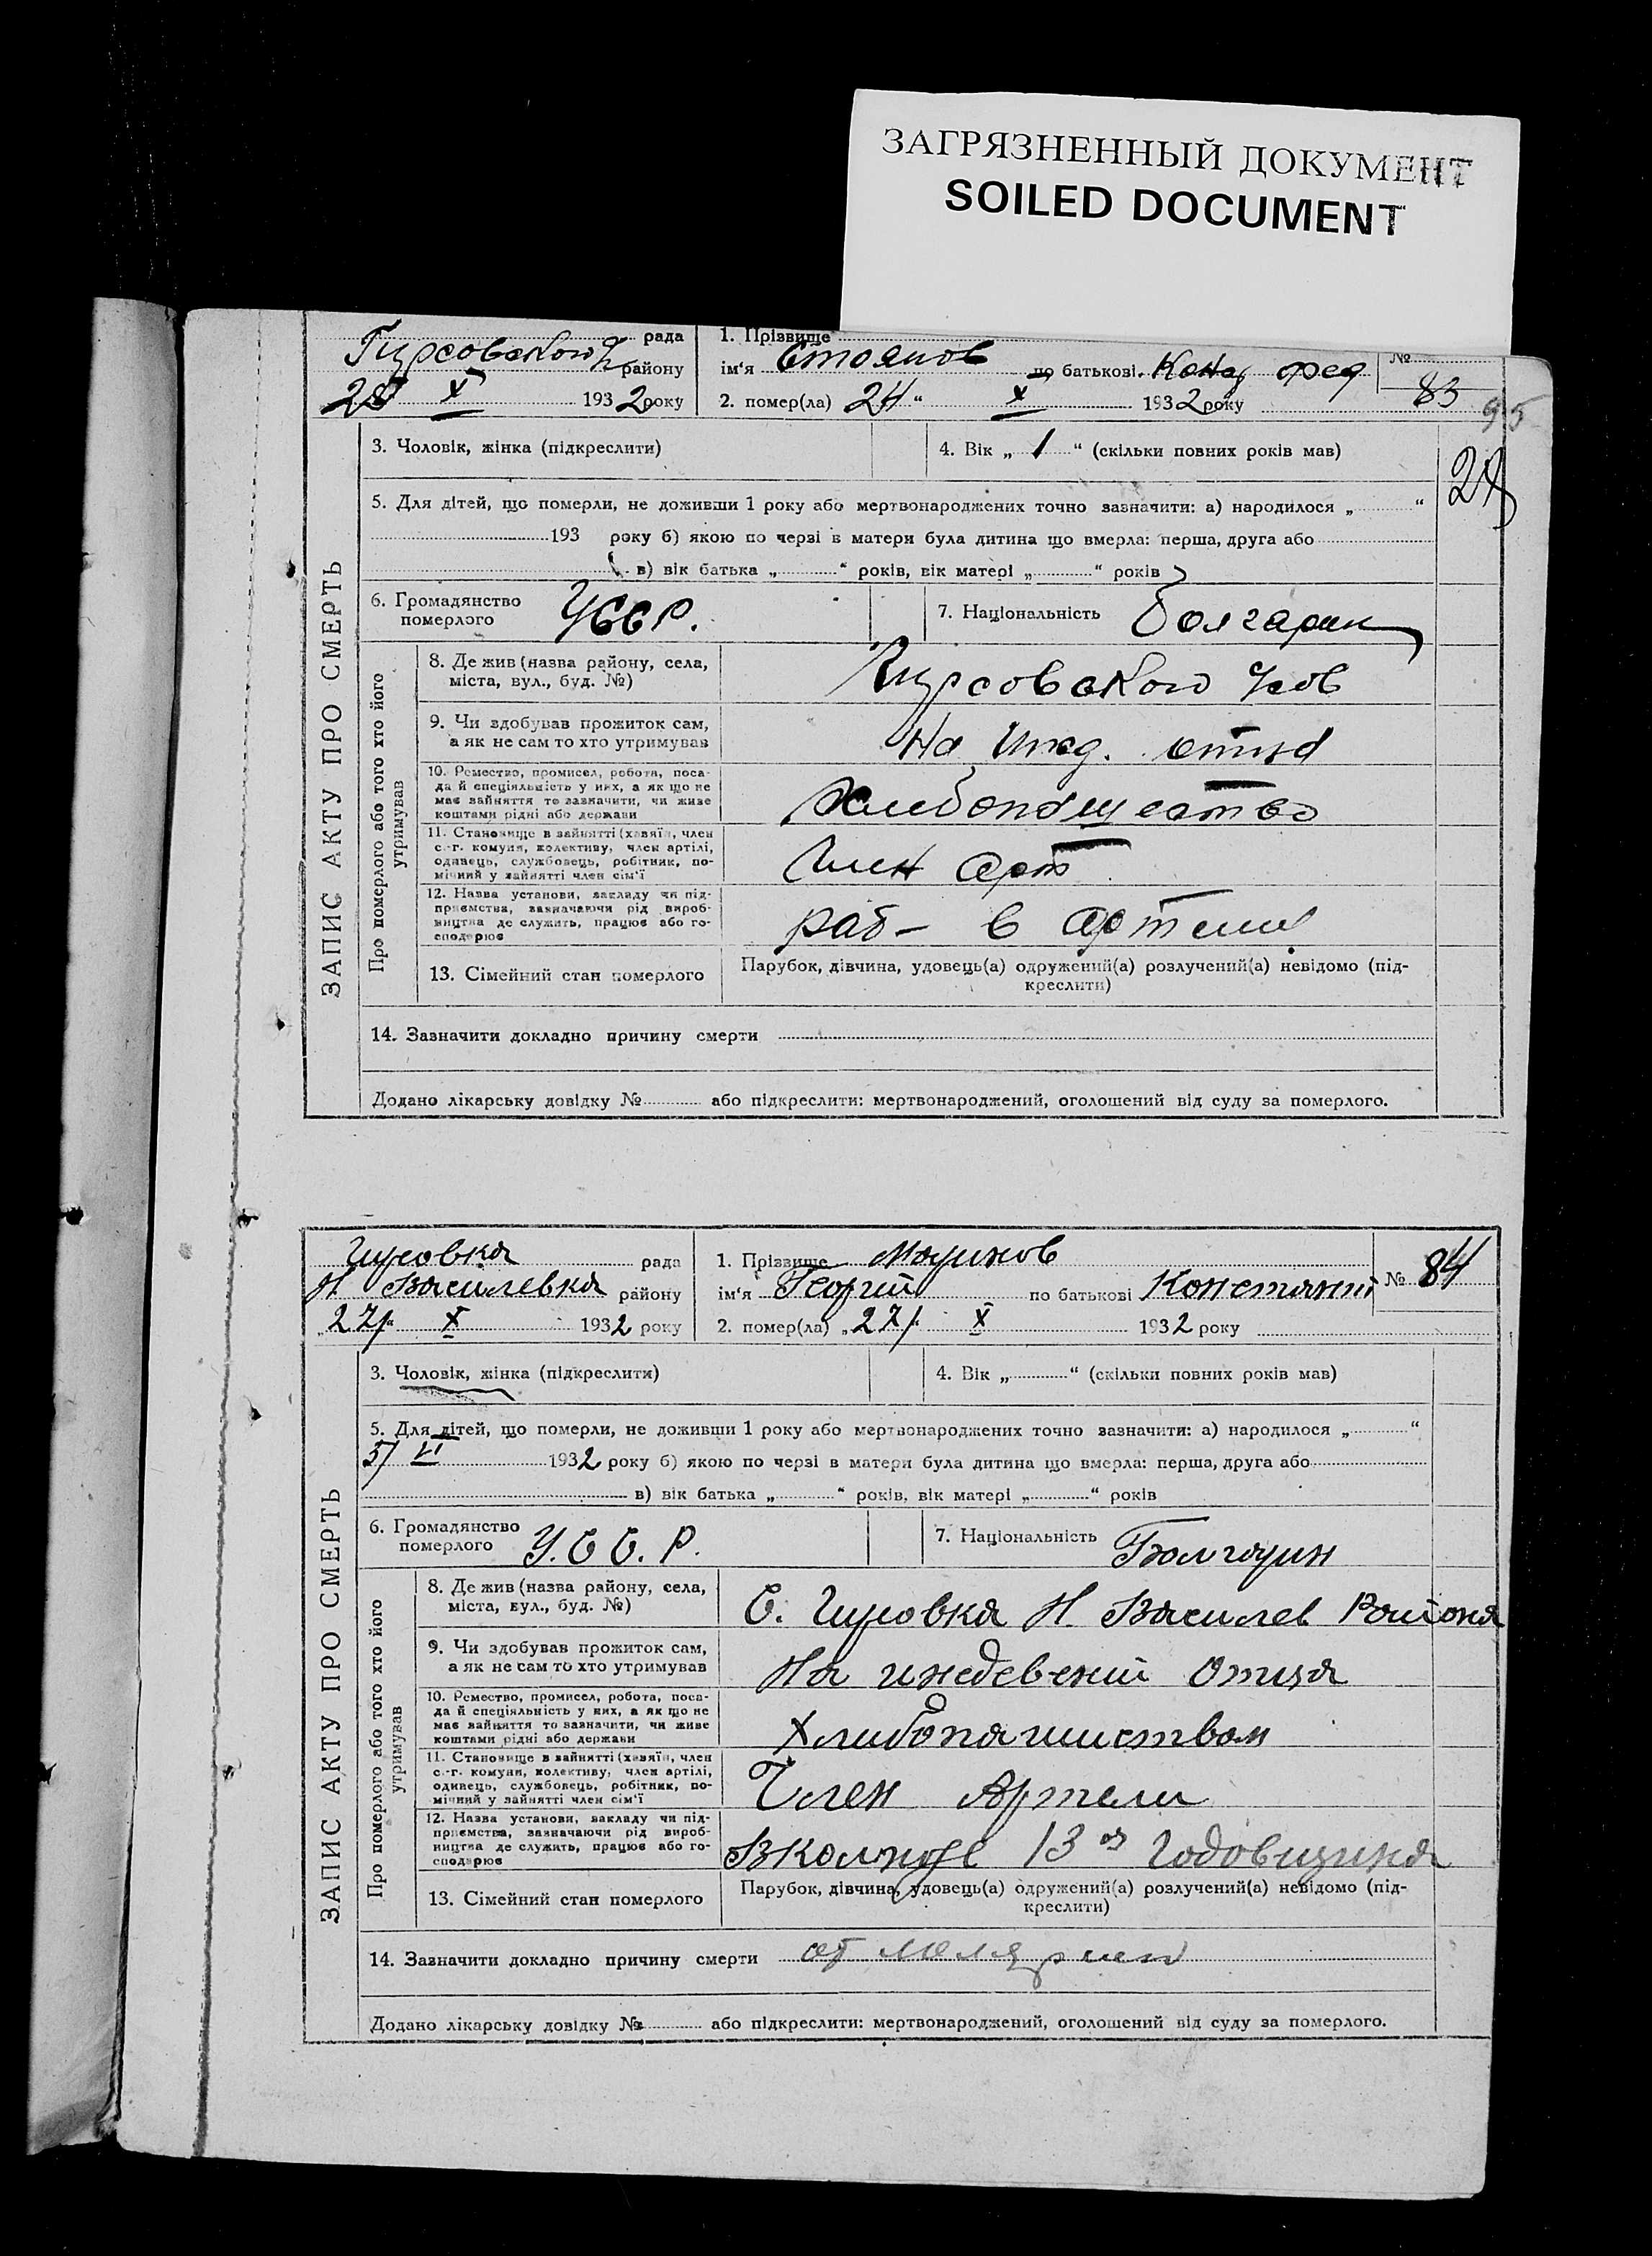 ЗАГРЯЗНЕННЫЙ ДОКУМЕНТ
SOILED DOCUMENT
рада
1. Прізвище
району
ім‘я Стоянов по батькові. Фед
№ 83
28 X 1932 року
2. помер(ла) 24 “ X 1932 року
95
3. Чоловік, жінка (підкреслити)
4. Вік „ 1 “ (скільки повних років мав)
5. Для дітей, що померли, не доживши 1 року або мертвонароджених точно зазначити: а) народилося „ “
193 року б) якою по черзі в матери була дитина що вмерла: перша, друга або
в) вік батька „ “ років, вік матері „ “ років
ЗАПИС АКТУ ПРО СМЕРТЬ
6. Громадянство померлого УССР.
7. Національність Болгарин
Про померлого або того хто його утримував
8. Де жив (назва району, села,
міста, вул., буд. №)
9. Чи здобував прожиток сам,
а як не сам то хто утримував
На ижд. отца
10. Ремество, промисел, робота, поса-
да й спеціяльність у них, а як що не
має зайняття то зазначити, чи живе
коштами рідні або держави
11. Становище в зайнятті (хазяїн, член
с.-г. комуни, колективу, член артілі,
одинець, службовець, робітник, по-
мічний у зайнятті член сім'ї
Член арт
12. Назва установи, закладу чи під-
приємства, зазначаючи рід вироб-
ництва де служить, працює або го-
сподарює
раб – в артели
13. Сімейний стан померлого
Парубок, дівчина, удовець(а) одружений(а) розлучений(а) невідомо (під-
креслити)
14. Зазначити докладно причину смерти
Додано лікарську довідку № або підкреслити: мертвонароджений, оголошений від суду за померлого.
Гировка рада
1. Прізвище Маринов
№ 84
Н Василевка району
ім‘я Георгий по батькові Констант
27/ X 1932 року
2. помер(ла) „ 27/ X 1932 року
3. Чоловік, жінка (підкреслити)
4. Вік „ “ (скільки повних років мав)
5. Для дітей, що померли, не доживши 1 року або мертвонароджених точно зазначити: а) народилося „ “
5/ VI 1932 року б) якою по черзі в матери була дитина що вмерла: перша, друга або
в) вік батька „ “ років, вік матері „ “ років
ЗАПИС АКТУ ПРО СМЕРТЬ
6. Громадянство померлого У.С.С.Р.
7. Національність Болгарин
Про померлого або того хто його утримував
8. Де жив (назва району, села,
міста, вул., буд. №)
С. Гировка Н. Василев Района
9. Чи здобував прожиток сам,
а як не сам то хто утримував
На иждевений Отца
10. Ремество, промисел, робота, поса-
да й спеціяльність у них, а як що не
має зайняття то зазначити, чи живе
коштами рідні або держави
Хлибопашиством
11. Становище в зайнятті (хазяїн, член
с.-г. комуни, колективу, член артілі,
одинець, службовець, робітник, по-
мічний у зайнятті член сім'ї
Член Артели
12. Назва установи, закладу чи під-
приємства, зазначаючи рід вироб-
ництва де служить, працює або го-
сподарює
13 Годовщина
13. Сімейний стан померлого
Парубок, дівчина, удовець(а) одружений(а) розлучений(а) невідомо (під-
креслити)
14. Зазначити докладно причину смерти от малярии
Додано лікарську довідку № або підкреслити: мертвонароджений, оголошений від суду за померлого.